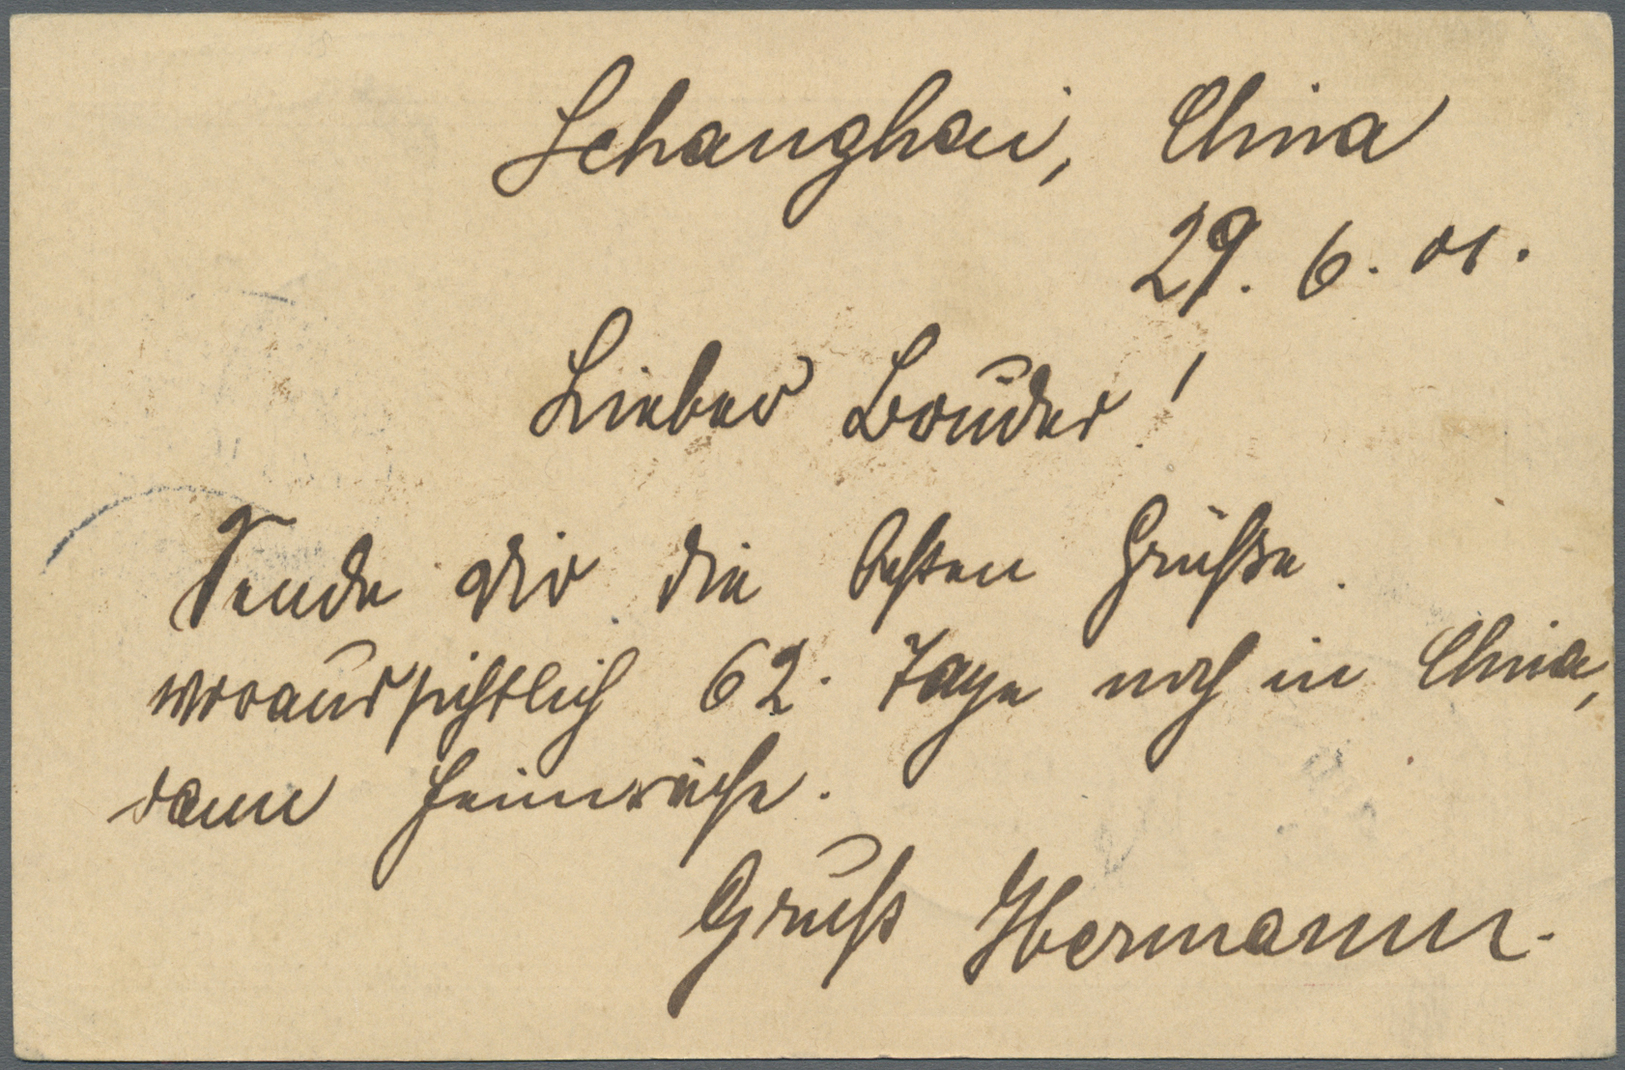 Schanghai, China
29. 6. 01.
Lieber Bruder!
Sende Dir die besten Grüße.
voraussichtlich 62. Tage noch in China,
dann Heimreise.
Gruß Hermann.